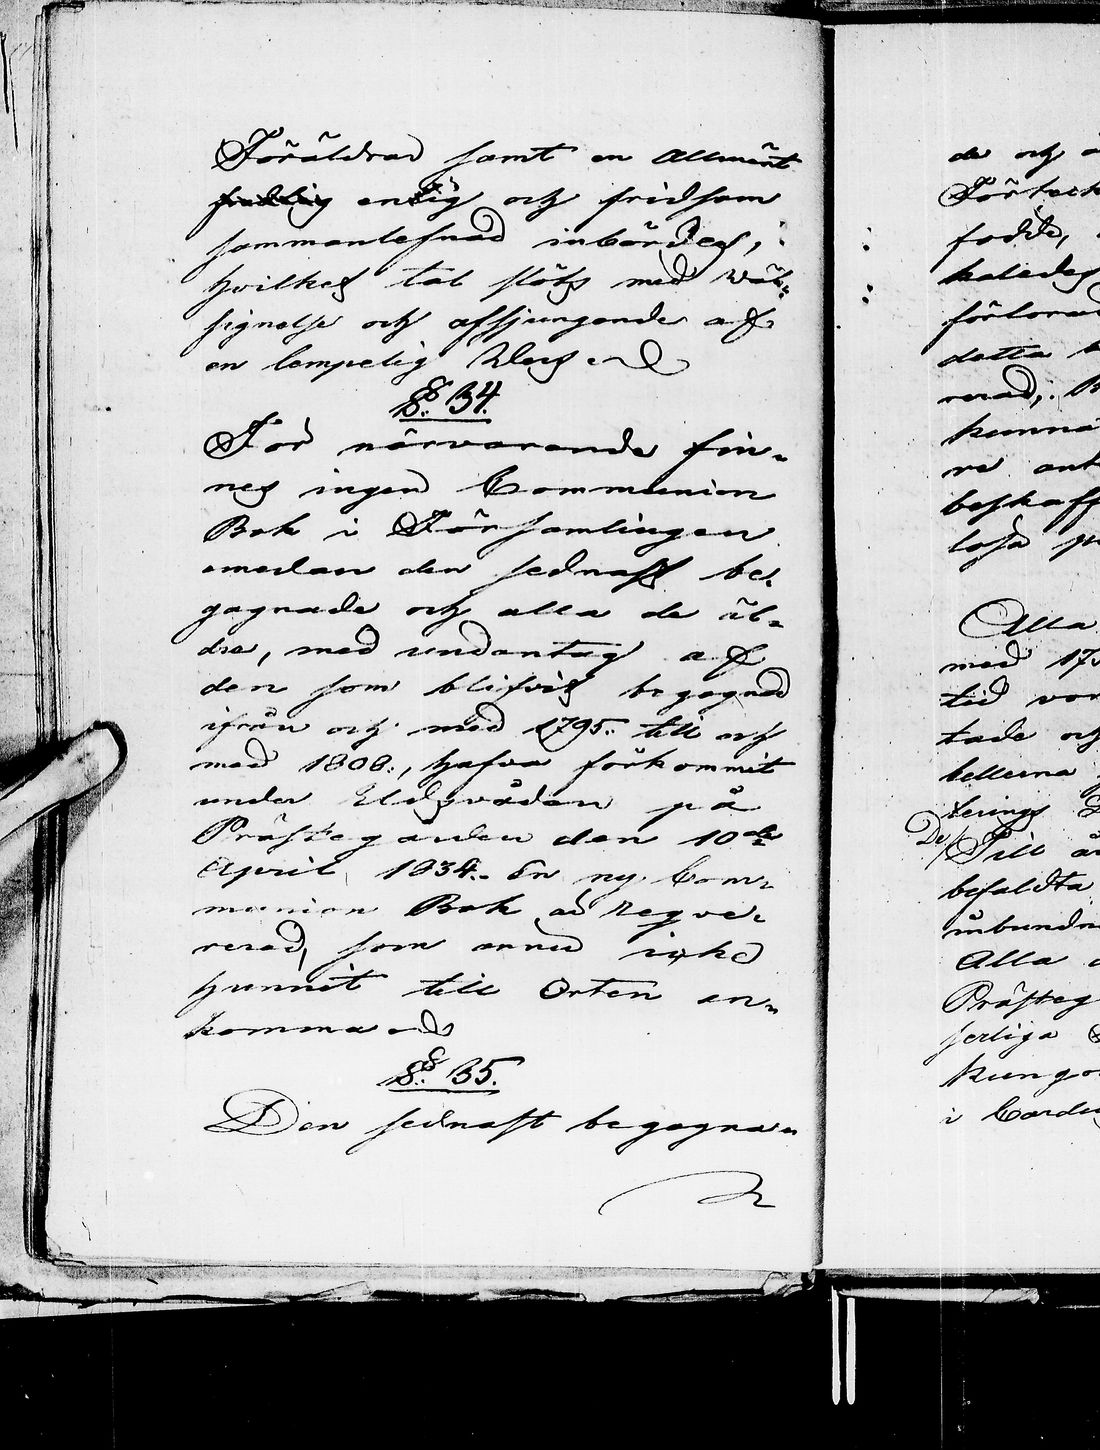 Föräldrar samt en allmänt
fredlig enlig och fridsam
sammanlefnad inbördes,
hvilket tal slöts med wäl-
signelse och afsjungande af
en lempelig Vers.
§. 34.
För närvarande fin-
nes ingen Communion
Bok i Församlingen
emedan den sednast be-
gagnade och alla de äl-
dre, med undantag af
den som blifvit begagnad
ifrån och med 1795. till och
med 1808., hafva förkommit
under Eldsvådan på
Prästegården den 10de
April 1834. En ny Com-
munion Bok är reqve-
rerad, som ännu icke
hunnit till Orten an-
komma.
§. 35.
Den sednast begagna-
de och
Förteck
födde,
kaledes
förlorad
detta
rerad,
kunna
re ant
beskaff
losa
Alla
med 17
tid vor
tade och
bellerna
terings
De
Till
befaldta
inbundn
Alla
Präfteg
serliga
kungö
i Carde